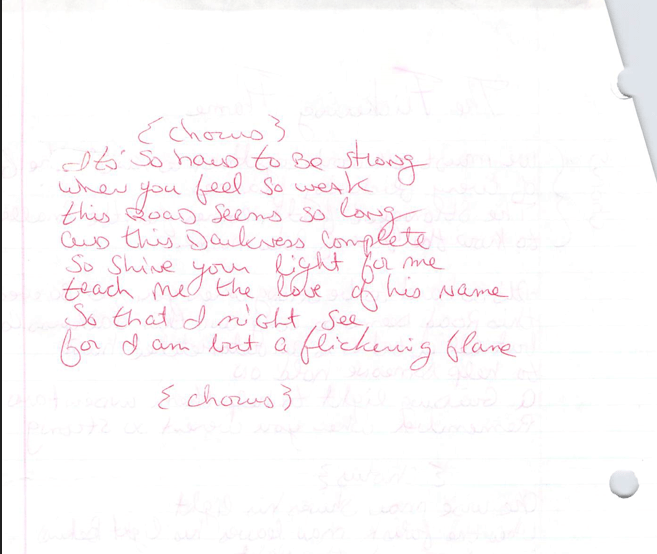 {chorus}
Its so hard to Be strong
when you feel so weak
this Road seems so long
and this Darkness complete
So shine your light for me
teach me the love of his name
So that I might see
for I am but a flickering flame
{chorus}